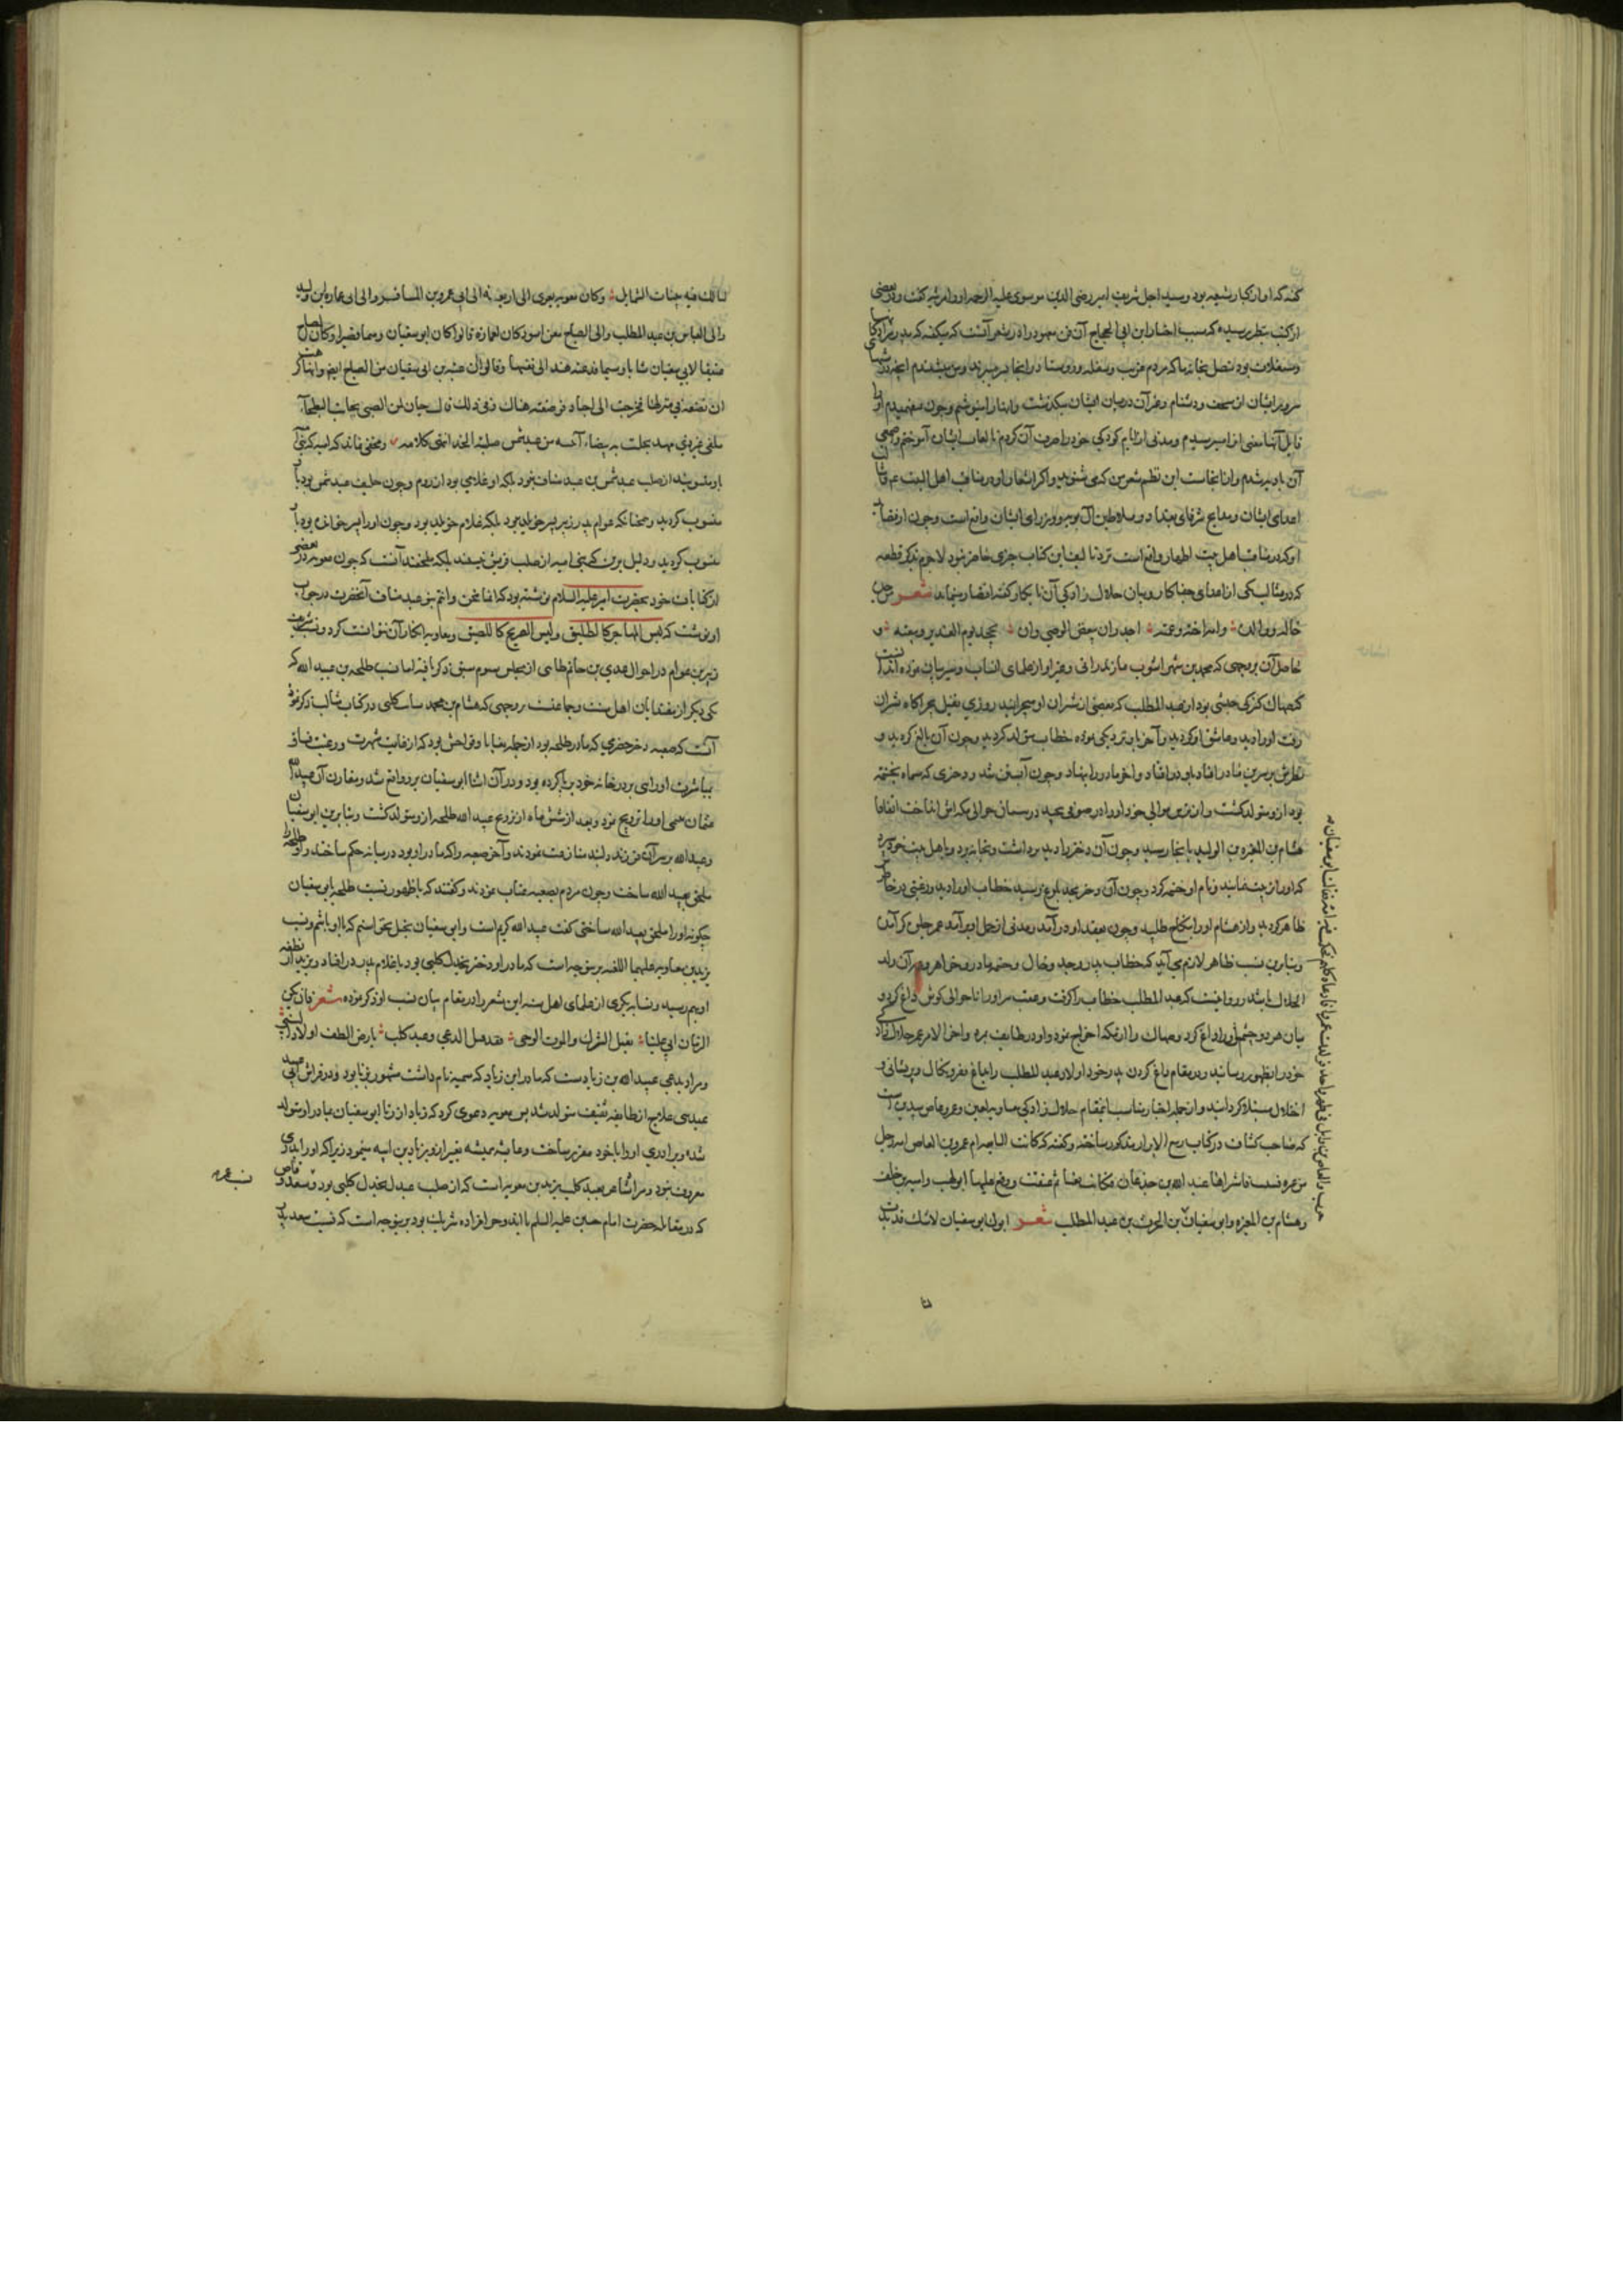 گفته که او از کبار شیعه بود و سید اجل شریف امیر رضی الدین موسوی علیه الرحمه او را مرثیه گفت و در بعضی
از کتب بنظر رسیده که سبب اختیار ابن ابی الحجاج آن فن معهود را در شعر آنست که میگفته که پدر مرا
متصل بخانه ما که مردم غریب و سفله و روستا در آنجا بسر میبردند و من میشنیدم آنچه در شبها
ایشان از سخف و دشنام و غیر آن در میان ایشان میگذشت و اینها را مینوشتم و چون نمیفهمیدم از
قایل آنها معنی آنرا میپرسیدم و مدتی از ایام کودکی خود را صرف آن کردم تا لغات ایشان آموختم و اصمعی
آن بادیه شدم و از اینجاست این نظم شعر من که می شنوید و اکثر اشعار او در مناقب اهل البیت ع م و مثالب
اعدای ایشان و مدایح شرفای بغداد و سلاطین آل بویه و وزرای ایشان واقع است و چون از قصاید
او که در مناقب اهل بیت اطهار واقع است نزد تالیف این کتاب چیزی حاضر نبود لاجرم بذکر قطعه
که در مثالب یکی از اعدای جفاکار و بیان حلال زادگی آن نابکار گفته اقتصار مینماید شعر من جده
خاله ووالده وامه اخته وعمته اجدر ان یبغض الوصی وان یجحد یوم الغدیر بیعته و
حاصل آن بر وجهی که محمد بن شهر آشوب مازندرانی و غیر او از علمای انساب و سیر بیان نموده اند آنست
که صهاک کنیزکی حبشی بود از عبد المطلب که بعضی از شتران او میچرانید روزی نفیل بچراگاه شتران
رفت او را دید و عاشق او گردید و آخر باو نزدیکی نموده خطاب متولد گردید و چون آن بالغ گردید و
نظرش بر سرین مادر افتاد باو در افتاد و آخر مادر را بنهاد و چون آبستن شد و دختری که مسماه بحنتمه
بود ازو متولد گشت و از ترس موالی خود او را در صوفی پیچید در میان حوالی مکه اش انداخت اتفاقا
هشام بن المغیره بن الولید بآنجا رسید و چون آن دختر را دید برداشت و بخانه برد و باهل بیت خود سپرد
که او را تربیت نمایند و نام او حنتمه کرد و چون آن دختر بحد بلوغ رسید خطاب او را دید و رغبتی در خاطر
ظاهر گردید و از هشام او را بنکاح طلبید و چون بعقد او در آمد و مدتی از حمل او بر آمد عمر حاصل گردید
و بنابرین نسب ظاهر لازم می آید که خطاب پدر و جد و خال و حنتمه مادر و خواهر و عمه آن ولد
الحلال باشد و روایتست که عبد المطلب خطاب را گرفت و جهت سراو را تا حوالی گوش داغ کرد و
میان هر دو چشم او را داغ کرد و صهاک را از مکه اخراج نمود و او در طایف بمرد و آخر الامر عمر حلال زادگی
خود را بظهور رسانید و در مقام داغ کردن پدر خود اولاد عبد المطلب را بداغ فقر و نکال و پریشانی و
اختلال مبتلا گردانید و از جمله اخبار مناسب اینمقام حلال زادگی معاویه لعین و عمر و عاص بیدین است
که صاحب کشاف در کتاب ربیع الابرار مذکور ساخته و گفته که کانت النابغه ام عمرو بن العاص امة رجل
من عنزه فسبیت فاشتراها عبد الله بن جذعان فکانت بغیا ثم عتقت ووقع علیها ابولهب وامیه بن خلف
وهشام بن المغیره وابو سفیان بن الحرث بن عبد المطلب شعر ابوک ابو سفیان لاشک قد بدت
حرب والعاص بن وایل فی طهر واحد فولدت عمروا فادعاه کلهم فحکمت فیه امه فقالت ابو سفیان
لنا
لنا لک فیه بینات الشمایل وکان معویه یعزی الی اربعة الی ابی عمرو بن المسافر والی ابی عماره بن الولید
والی العباس بن عبد المطلب والی الصباح مغن اسود کان لعماره قالوا کان ابو سفیان دمیما قصیرا وکان الصباح
عسیفا لابی سفیان شابا وسیما فدعته هند الی نفسها وقالوا ان عتبه بن ابی سفیان من الصباح ایضا وانها کرهت
ان تضعه فی منزلها فخرجت الی اجیاد فوضعته هناک وفی ذلک قال حسان لمن الصبی بجانب البطحاء
ملقی غیر ذی مهد نجلت به بیضاء آنسه من عبد شمس صلبة الخد انتهی کلامه و مخفی نماند که امیه که بنی
باو منسوبند از صلب عبد شمس بن عبد مناف نبود بلکه او غلامی بود از روم و چون حلیف عبد شمس بود باو
منسوب گردید و همچنانکه عوام پدر زبیر پسر خویلد نبود بلکه غلام خویلد بود و چون او را پسر خوانده بود باو
منسوب گردید و دلیل برین که بنی امیه از صلب قریش نیستند بلکه ملحقند آنست که چون معویه در بعضی
از کتابات خود بحضرت امیر علیه السلام نوشته بود که انما نحن وانتم بنو عبد مناف آنحضرت در جواب
او نوشت که لیس المهاجر کالطلیق ولیس الصریح کاللصیق و معاویه انکار آن نتوانست کرد و نسبت
زبیر بن عوام در احوال عدی بن حاتم طایی از مجلس سوم سبق ذکر یافته اما نسب طلحه بن عبید الله که
یکی دیگر از مقتدایان اهل سنت و جماعتست بر وجهی که هشام بن محمد سایب کلبی در کتاب مثالب ذکر نموده
آنست که صعبه دختر حضرمی که مادر طلحه بود از جمله بغایا و فواحش بود که از غایت شهرت و رغبت
بمباشرت او رایتی بر در خانه خود برپا کرده بود و در آن اثنا ابو سفیان برو واقع شد و مقارن آن عبید الله
عثمان تیمی او را تزویج نمود و بعد از شش ماه از تزوج عبید الله طلحه ازو متولد گشت و بنا برین ابو سفیان
و عبید الله بر سر آن فرزند دلبند منازعت نمودند و آخر صعبه را که مادر او بود در میانه حکم ساختند و او طلحه را
ملحق بعبید الله ساخت و چون مردم بصعبه عتاب نمودند و گفتند که با ظهور نسبت طلحه بابی سفیان
چگونه او را ملحق بعبید الله ساختی گفت عبید الله کریم است و ابی سفیان بخیل نخواستم که با او باشم و نسب
یزید بن معاویه علیهما اللعنه برین وجه است که مادر او دختر بجدل کلبی بود با غلام پدر در افتاد و یزید از نطفه
او بهم رسید و نسابه بکری از علمای اهل سنه این شعر را در مقام بیان نسب او ذکر نموده شعر فان یکن
الزمان اتی علینا بقتل الترک والموت الوحی فقد قتل الدعی وعبد کلب بارض الطف اولاد النبی
و مراد بدعی عبید الله بن زیادست که مادر ابن زیاد که سمیه نام داشت مشهور بزنا بود و در فراش ابی عبید
عبد بنی علاج از طایفه ثقیف متولد شد پس معویه دعوی کرد که زیاد از زنا ابو سفیان بمادر او متولد
شده و برادری او را با خود مقرر ساخت و عایشه همیشه تعبیر ازو بزیاد بن ابیه مینمود زیرا که او را پدری
معروف نبود و مراد شاعر بعبد کلب یزید بن معویه است که از صلب عبد بجدل کلبی بود و سعد وقاص
که در مقاتله حضرت امام حسین علیه السلم با این دو حرامزاده شریک بود برینوجه است که نسبت سعد بپدر
نسب عمر